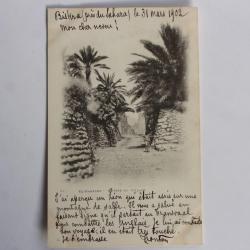 Biskra (près du Sahara) le 31 mars 1902
mon cher neveu!
J'ai aperçu un lion qui était assis sur une
montagne de sable. Il nous a salué en
faisant signe qu'il partait au Transvaal
pour combattre les Anglais. Je lui ai souhaité
bon voyage; il en était très touché.
je t'embrasse